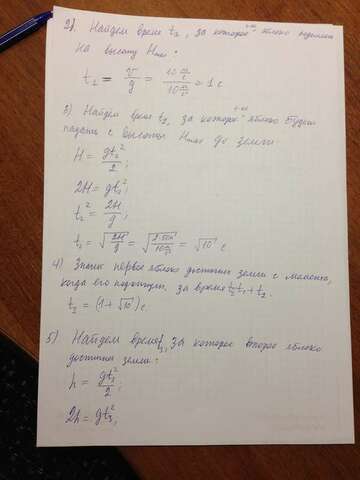 2). Найдем время t₂, за которое 1-ое яблоко поднимется
на высоту Hmax:
t₂ = v/g = 10 м/с / 10 м/с² = 1 с
3) Найдем время t₂, за которое 1-ое яблоко будет
падать с высоты Hmax до земли
H = gt₂²/2;
2H = gt₂²;
t₂² = 2H/g;
t₂ = √(2H/g) = √(2·50м/10 м/с²) = √10 с
4) Значит первое яблоко достигнет земли с момента,
когда его подкинули за время t₁+t₂.
t₂ = (1+√10) с.
5) Найдем время t₃, за которое второе яблоко
достигнет земли:
h = gt₃²/2;
2h = gt₃²;